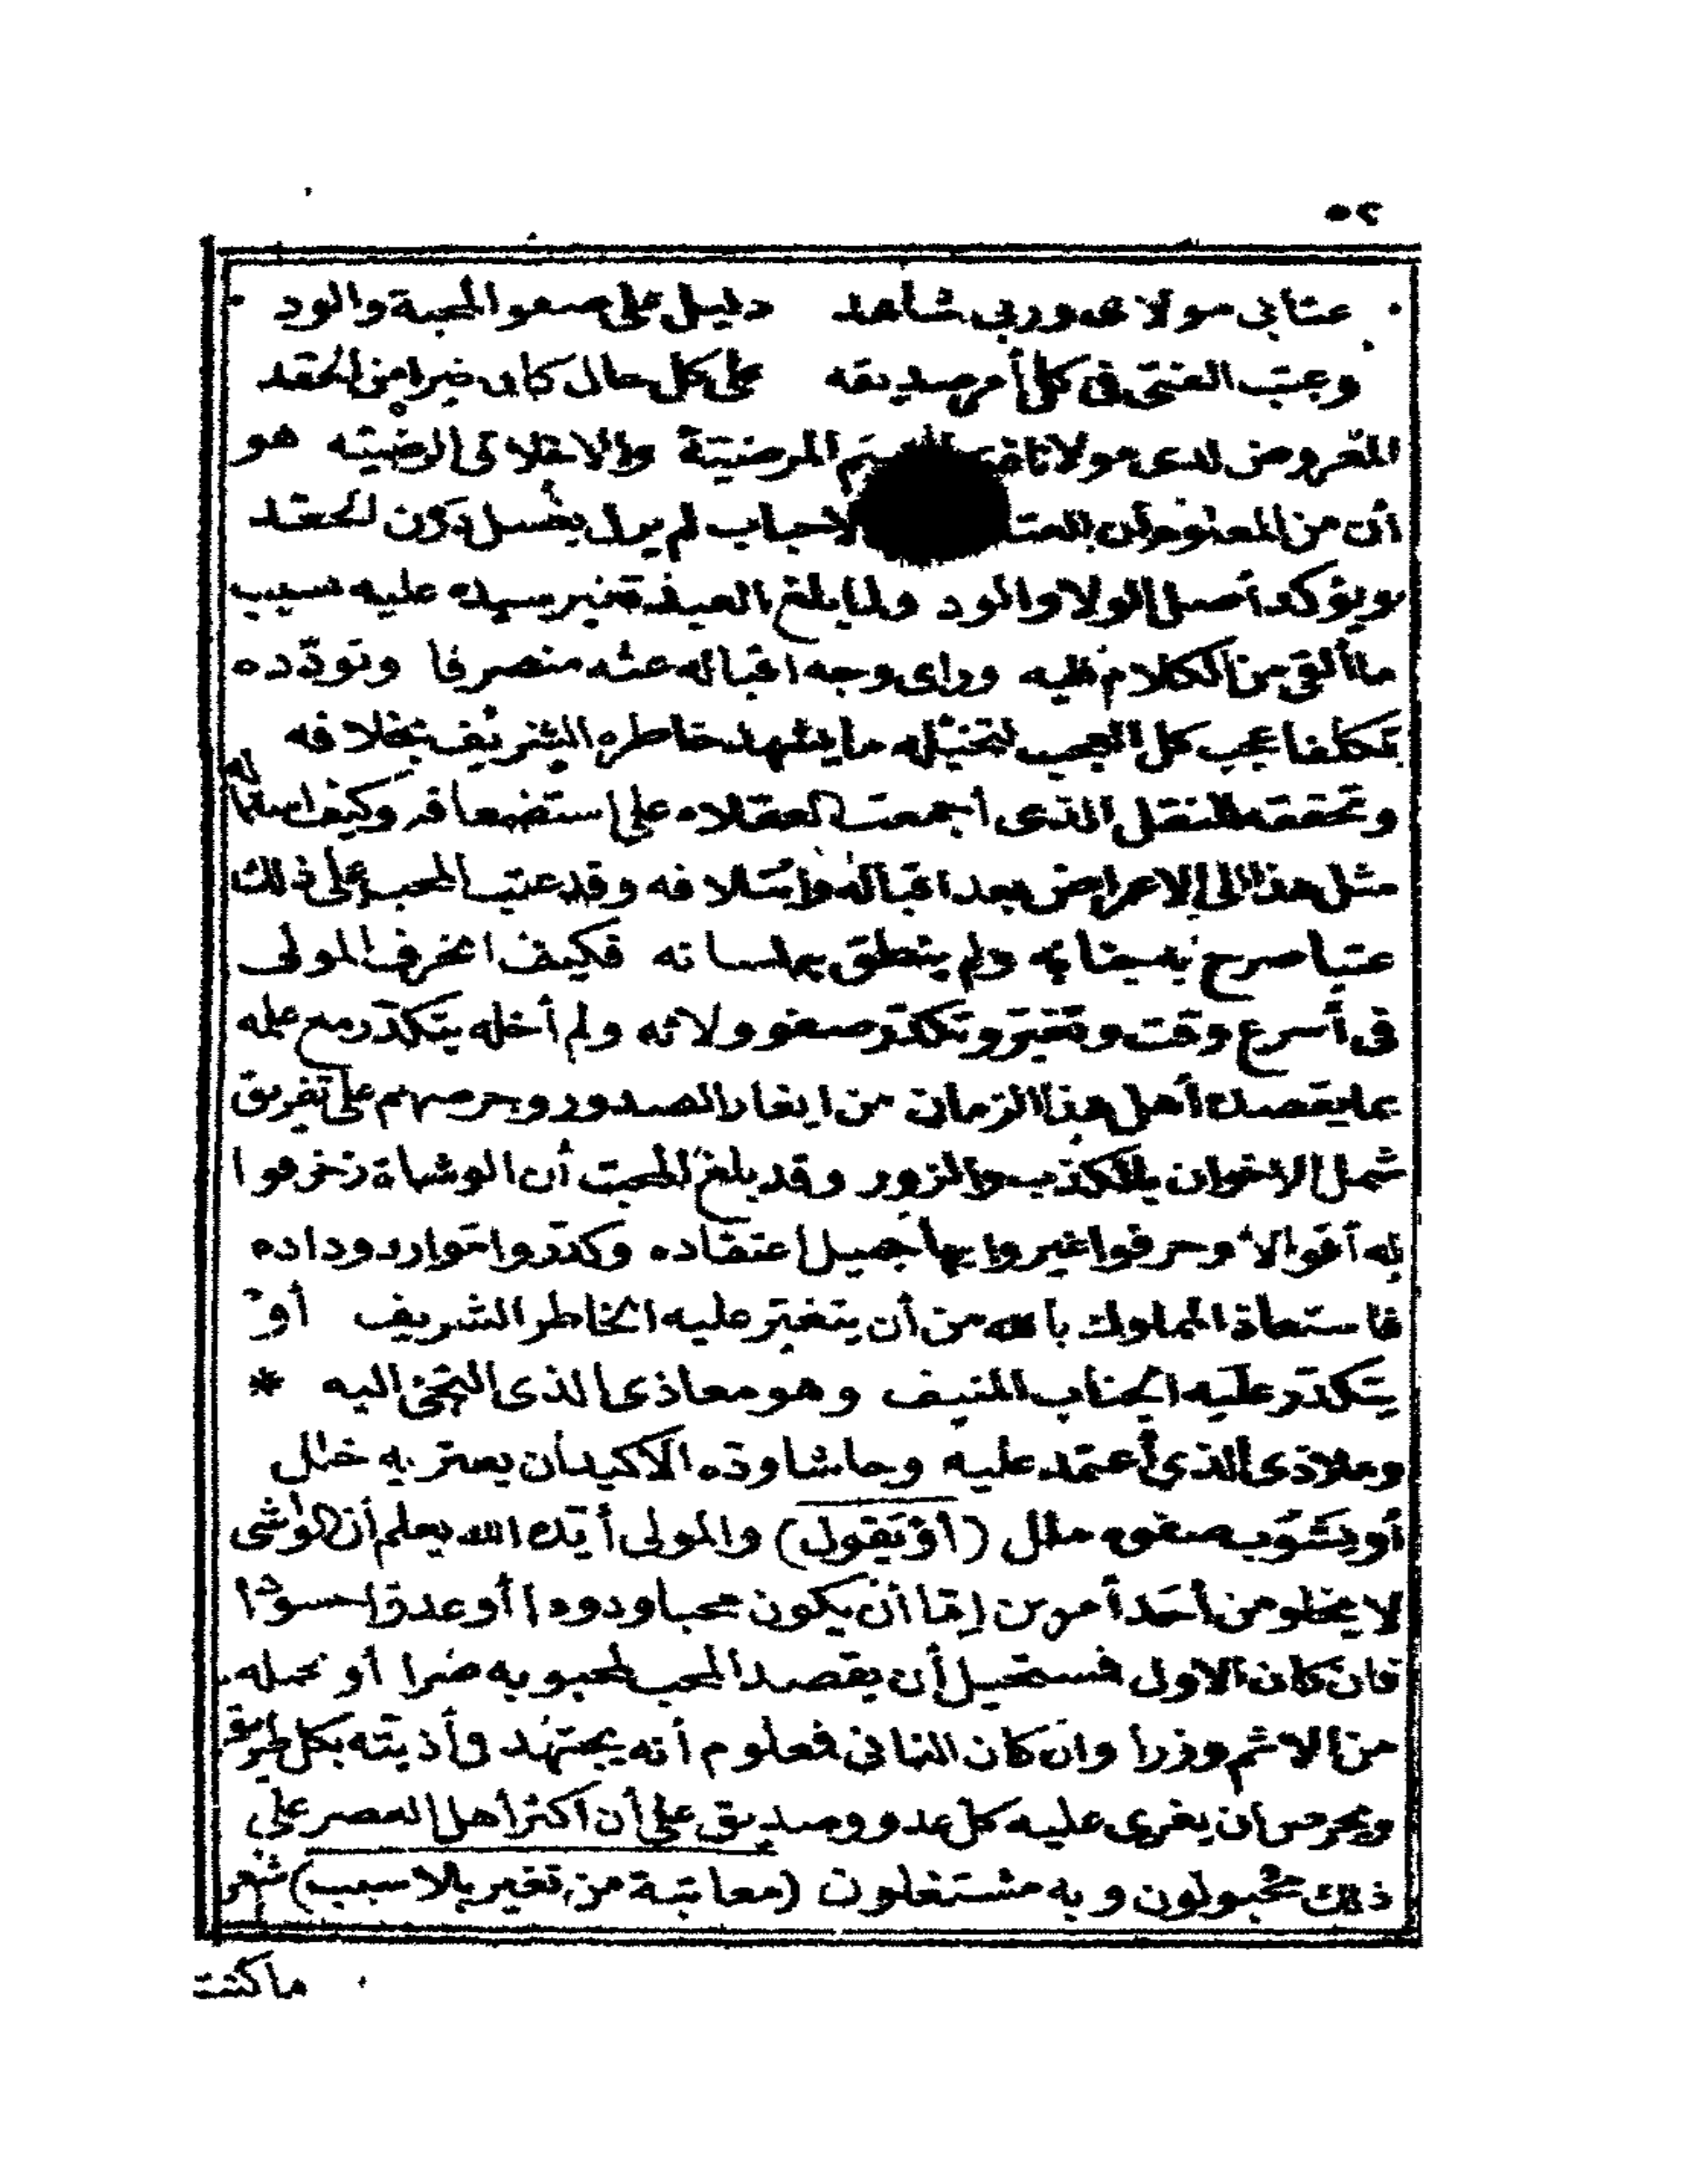 ٥٢
عتابي مولاى وربي شاهد دليل على صفو المحبة والود
وعتب الفتى فى كل أمر صديقه على كل حال كان خيرا من الحقد
المعروض لدى مولانا المرضية والاخلاق الرضيه هو
أن من المعلوم أن لاحباب لم يزل يغسل درن الحقد
ويؤكد أصل الولا والود ولما بلغ العبد تغير سيده عليه بسبب
ما ألقى من الكلام اليه وراى وجه اقباله عنه منصرفا وتودّده
تكلفا عجب كل العجب لتخيله ما يشهد خاطره الشريف بخلافه
وتحققه للنقل الذى أجمعت العقلاء على استضعافه وكيف استماله
مثل هذا الى الاعراض بعد اقباله وائتلافه وقد عتب المحب على ذلك
عتبا صرح به جنابه ولم ينطق به لسانه فكيف انحرف المولى
فى أسرع وقت وتغير وتكدّر صفو ولائه ولم أخله يتكدّر مع علمه
بما يقصده أهل هذا الزمان من ايغار الصدور وحرصهم على تفريق
شمل الاخوان بالكذب والزور وقد بلغ المحب أن الوشاة زخرفوا
له أقوالا وحرفوا غيروا بها جميل اعتقاده وكدّروا موارد وداده
فاستعاذ المملوك بالله من أن يتغير عليه الخاطر الشريف أو
يتكدّر عليه الجناب المنيف وهو معاذى الذى التجئ اليه *
وملاذى الذى أعتمد عليه وحاشا ودّه الاكيد أن يعتريه خلل
أو يشوب صفوه ملل (أو يقول) والمولى أيّده الله يعلم أن الواشى
لا يخلو من أحد أمرين إمّا أن يكون محبا ودودا أو عدوّا حسودا
فان كان الاولى فستحيل أن يقصد المحب لمحبوبه ضرا أو يحمله
من الاثم وزرا وان كان الثانى فعلوم أنه يجتهد فى أذيته بكل طريق
ويحرص أن يغرى عليه كل عدو وصديق على أن اكثر أهل العصر على
ذلك مجبولون وبه مشتغلون (معاتبة من تغير بلا سبب) شعر
ما كنت